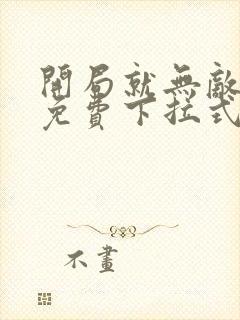 開局就無敵
免費下拉式
不畫